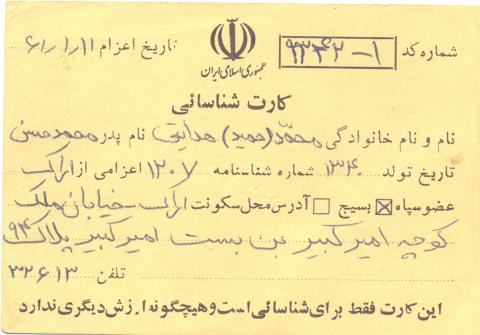 شماره کد ۹۳۳۶۲-۱
تاریخ اعزام ۶۱/۱/۱۱
جمهوری اسلامی ایران
کارت شناسائی
نام و نام خانوادگی محمد (حمید) هدایتی نام پدر محمدحسن
تاریخ تولد ۱۳۴۰ شماره شناسنامه ۱۲۰۷ اعزامی از اراک
عضو سپاه ☒ بسیج ☐ آدرس محل سکونت اراک - خیابان ملک
کوچه امیر کبیر بن بست امیر کبیر پلاک ۹۴
تلفن ۳۲۶۱۳
این کارت فقط برای شناسائی است و هیچگونه ارزش دیگری ندارد